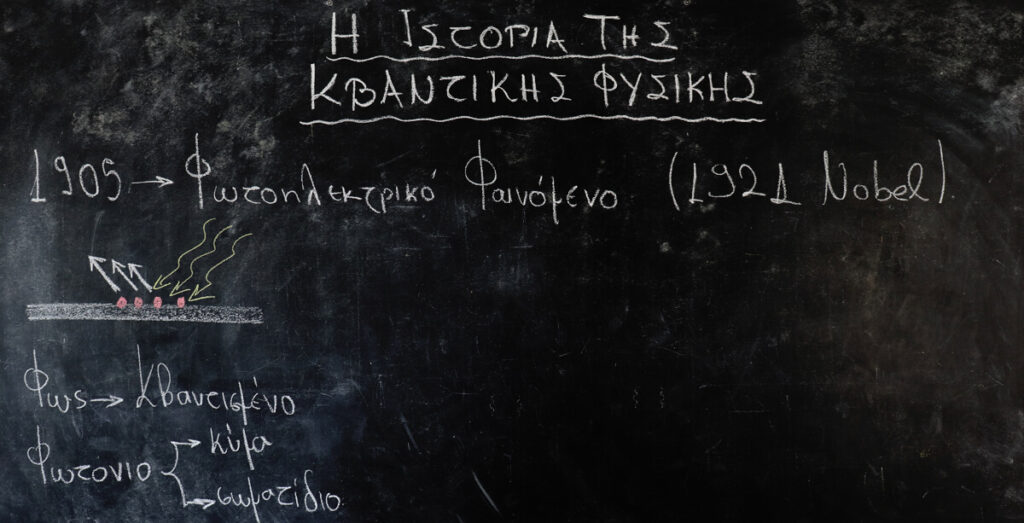 Η ΙΣΤΟΡΙΑ ΤΗΣ
ΚΒΑΝΤΙΚΗΣ ΦΥΣΙΚΗΣ
1905 → Φωτοηλεκτρικό Φαινόμενο (1921 Nobel).
Φως → Κβαντισμένο
κύμα
Φωτόνιο
σωματίδιο